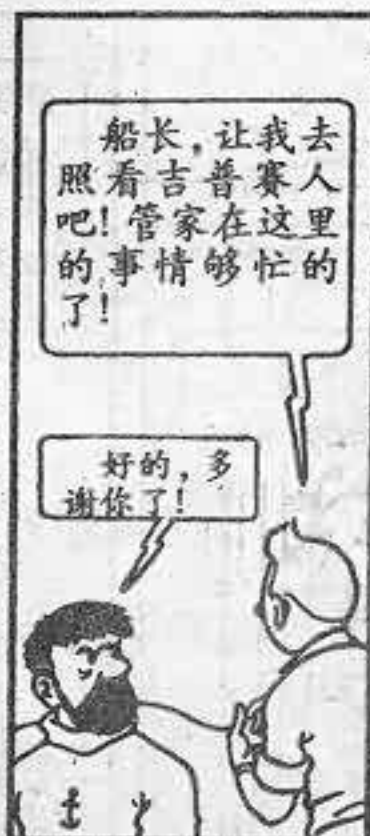 船长，让我去
照看吉普赛人
吧！管家在这里
的事情够忙的
了！
好的，多
谢你了！